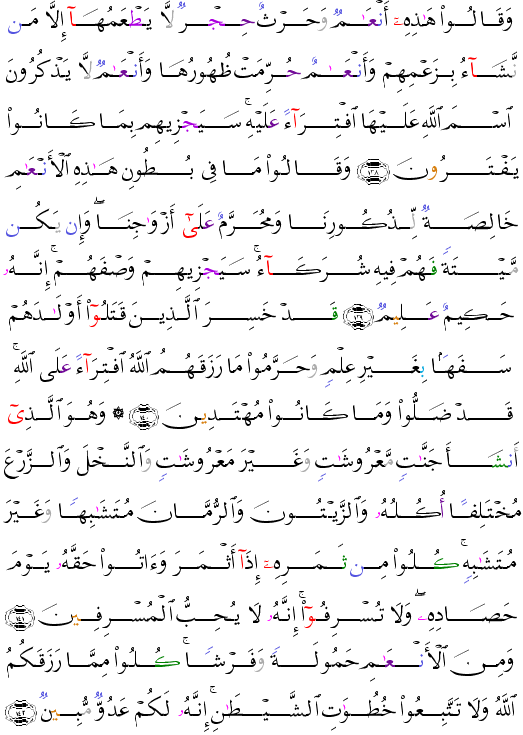 وَقَالُوا۟ هَـٰذِهِۦٓ أَنْعَـٰمٌ وَحَرْثٌ حِجْرٌ لَّا يَطْعَمُهَآ إِلَّا مَن
نَّشَآءُ بِزَعْمِهِمْ وَأَنْعَـٰمٌ حُرِّمَتْ ظُهُورُهَا وَأَنْعَـٰمٌ لَّا يَذْكُرُونَ
ٱسْمَ ٱللَّهِ عَلَيْهَا ٱفْتِرَآءً عَلَيْهِ ۚ سَيَجْزِيهِم بِمَا كَانُوا۟
يَفْتَرُونَ ﴿١٣٨﴾ وَقَالُوا۟ مَا فِى بُطُونِ هَـٰذِهِ ٱلْأَنْعَـٰمِ
خَالِصَةٌ لِّذُكُورِنَا وَمُحَرَّمٌ عَلَىٰٓ أَزْوَٰجِنَا ۖ وَإِن يَكُن
مَّيْتَةً فَهُمْ فِيهِ شُرَكَآءُ ۚ سَيَجْزِيهِمْ وَصْفَهُمْ ۚ إِنَّهُۥ
حَكِيمٌ عَلِيمٌ ﴿١٣٩﴾ قَدْ خَسِرَ ٱلَّذِينَ قَتَلُوٓا۟ أَوْلَـٰدَهُمْ
سَفَهًۢا بِغَيْرِ عِلْمٍ وَحَرَّمُوا۟ مَا رَزَقَهُمُ ٱللَّهُ ٱفْتِرَآءً عَلَى ٱللَّهِ ۚ
قَدْ ضَلُّوا۟ وَمَا كَانُوا۟ مُهْتَدِينَ ﴿١٤٠﴾ ۞ وَهُوَ ٱلَّذِىٓ
أَنشَأَ جَنَّـٰتٍ مَّعْرُوشَـٰتٍ وَغَيْرَ مَعْرُوشَـٰتٍ وَٱلنَّخْلَ وَٱلزَّرْعَ
مُخْتَلِفًا أُكُلُهُۥ وَٱلزَّيْتُونَ وَٱلرُّمَّانَ مُتَشَـٰبِهًا وَغَيْرَ
مُتَشَـٰبِهٍ ۚ كُلُوا۟ مِن ثَمَرِهِۦٓ إِذَآ أَثْمَرَ وَءَاتُوا۟ حَقَّهُۥ يَوْمَ
حَصَادِهِۦ ۖ وَلَا تُسْرِفُوٓا۟ ۚ إِنَّهُۥ لَا يُحِبُّ ٱلْمُسْرِفِينَ ﴿١٤١﴾
وَمِنَ ٱلْأَنْعَـٰمِ حَمُولَةً وَفَرْشًا ۚ كُلُوا۟ مِمَّا رَزَقَكُمُ
ٱللَّهُ وَلَا تَتَّبِعُوا۟ خُطُوَٰتِ ٱلشَّيْطَـٰنِ ۚ إِنَّهُۥ لَكُمْ عَدُوٌّ مُّبِينٌ ﴿١٤٢﴾